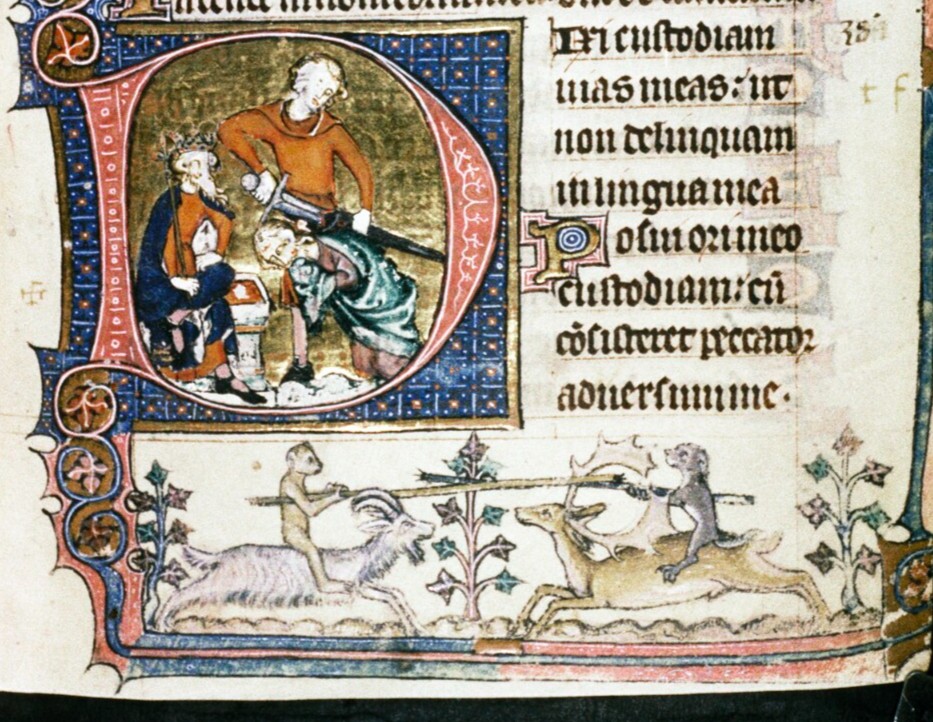 DIxi custodiam
uias meas: ut
non delinquam
in lingua mea
Posui ori meo
custodiam: cū
cōsisteret peccator
aduersum me.